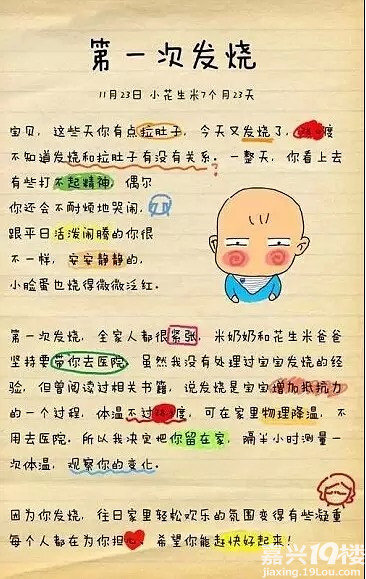 第一次发烧
11月23日 小花生米7个月23天
宝贝，这些天你有点拉肚子，今天又发烧了，38.3度
不知道发烧和拉肚子有没有关系。一整天，你看上去
有些打不起精神，偶尔
你还会不耐烦地哭闹，
跟平日活泼闹腾的你很
不一样，安安静静的，
小脸蛋也烧得微微泛红。
第一次发烧，全家人都很紧张，米奶奶和花生米爸爸
坚持要带你去医院，虽然我没有处理过宝宝发烧的经
验，但曾阅读过相关书籍，说发烧是宝宝增加抵抗力
的一个过程，体温不过38.5度，可在家里物理降温，不
用去医院。所以我决定把你留在家，隔半小时测量一
次体温，观察你的变化。
因为你发烧，往日家里轻松欢乐的氛围变得有些凝重
每个人都在为你担心，希望你能赶快好起来！
嘉兴19楼
jiaxing.19lou.com